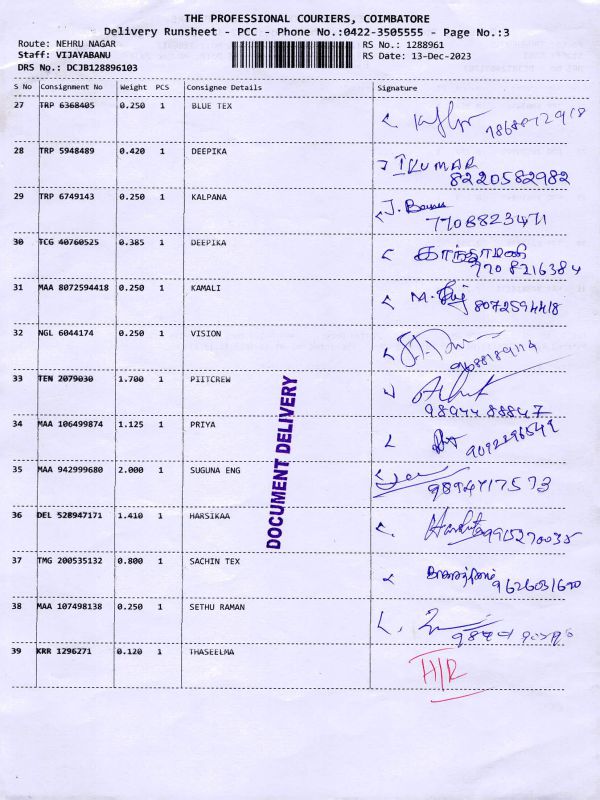 THE PROFESSIONAL COURIERS, COIMBATORE
Delivery Runsheet - PCC - Phone No.:0422-3505555 - Page No.:3
Route: NEHRU NAGAR
Staff: VIJAYABANU
DRS No.: DCJB128896103
RS No.: 1288961
RS Date: 13-Dec-2023
S No Consignment No Weight PCS Consignee Details Signature
27 TRP 6368405 0.250 1 BLUE TEX
28 TRP 5948489 0.420 1 DEEPIKA IKUMAR
8220582982
29 TRP 6749143 0.250 1 KALPANA
7708823471
30 TCG 40760525 0.385 1 DEEPIKA காந்தாமணி
970 8216384
31 MAA 8072594418 0.250 1 KAMALI 8072594418
32 NGL 6044174 0.250 1 VISION
33 TEN 2079030 1.700 1 PIITCREW
98944 88847
34 MAA 106499874 1.125 1 PRIYA
35 MAA 942999680 2.000 1 SUGUNA ENG
9894717573
36 DEL 528947171 1.410 1 HARSIKAA
37 TMG 200535132 0.800 1 SACHIN TEX
38 MAA 107498138 0.250 1 SETHU RAMAN
39 KRR 1296271 0.120 1 THASEELMA H/R
DOCUMENT DELIVERY